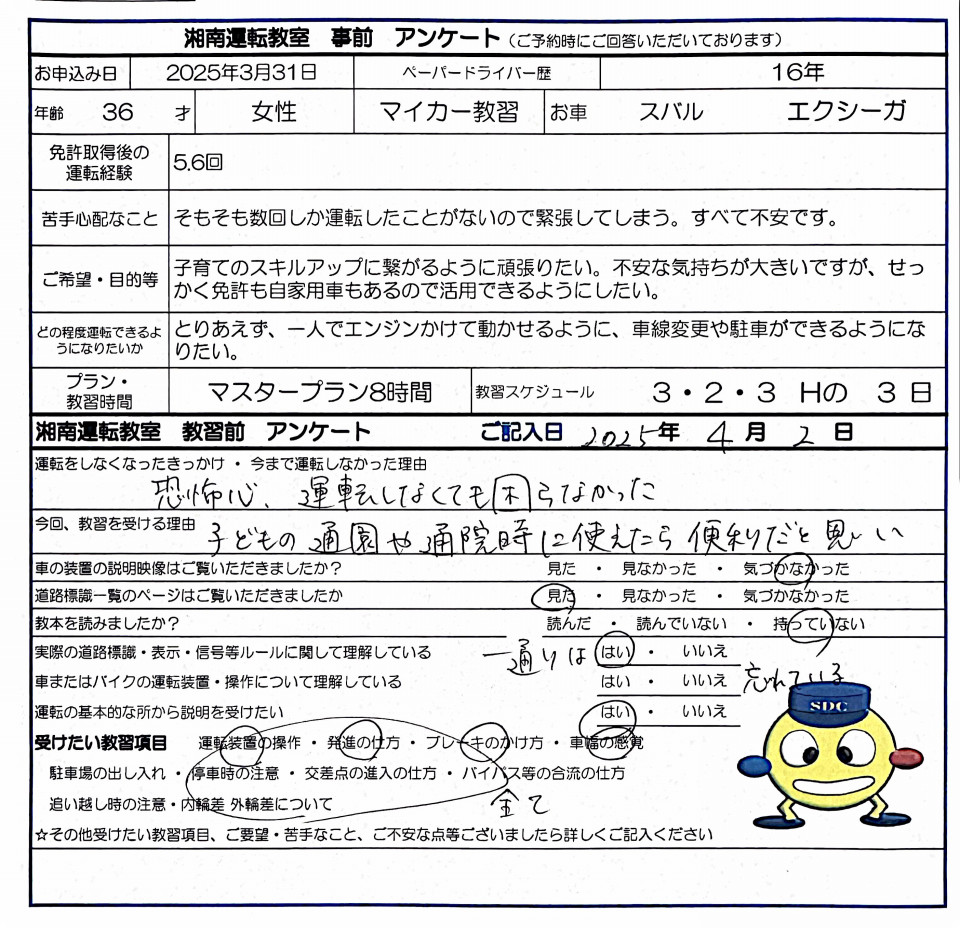 湘南運転教室 事前 アンケート（ご予約時にご回答いただいております）
お申込み日 2025年3月31日 ペーパードライバー歴 16年
年齢 36 才 女性 マイカー教習 お車 スバル エクシーガ
免許取得後の
運転経験
5.6回
苦手心配なこと そもそも数回しか運転したことがないので緊張してしまう。すべて不安です。
ご希望・目的等
子育てのスキルアップに繋がるように頑張りたい。不安な気持ちが大きいですが、せっ
かく免許も自家用車もあるので活用できるようにしたい。
どの程度運転できるよ
うになりたいか
とりあえず、一人でエンジンかけて動かせるように、車線変更や駐車ができるようにな
りたい。
プラン・
教習時間
マスタープラン8時間 教習スケジュール 3・2・3 Hの 3 日
湘南運転教室 教習前 アンケート ご記入日 2025年 4月 2日
運転をしなくなったきっかけ ・ 今まで運転しなかった理由
恐怖心、運転しなくても困らなかった
今回、教習を受ける理由 子どもの通園や通院時に使えたら便利だと思い
車の装置の説明映像はご覧いただきましたか？ 見た ・ 見なかった ・ 気づかなかった
道路標識一覧のページはご覧いただきましたか 見た ・ 見なかった ・ 気づかなかった
教本を読みましたか？ 読んだ ・ 読んでいない ・ 持っていない
実際の道路標識・表示・信号等ルールに関して理解している 一通りは はい ・ いいえ
車またはバイクの運転装置・操作について理解している はい ・ いいえ 忘れている
運転の基本的な所から説明を受けたい はい ・ いいえ
SDC
受けたい教習項目 運転装置の操作 ・ 発進の仕方 ・ ブレーキのかけ方 ・ 車幅の感覚
駐車場の出し入れ ・ 停車時の注意 ・ 交差点の進入の仕方 ・ バイパス等の合流の仕方
追い越し時の注意・内輪差 外輪差について 全て
☆その他受けたい教習項目、ご要望・苦手なこと、ご不安な点等ございましたら詳しくご記入ください